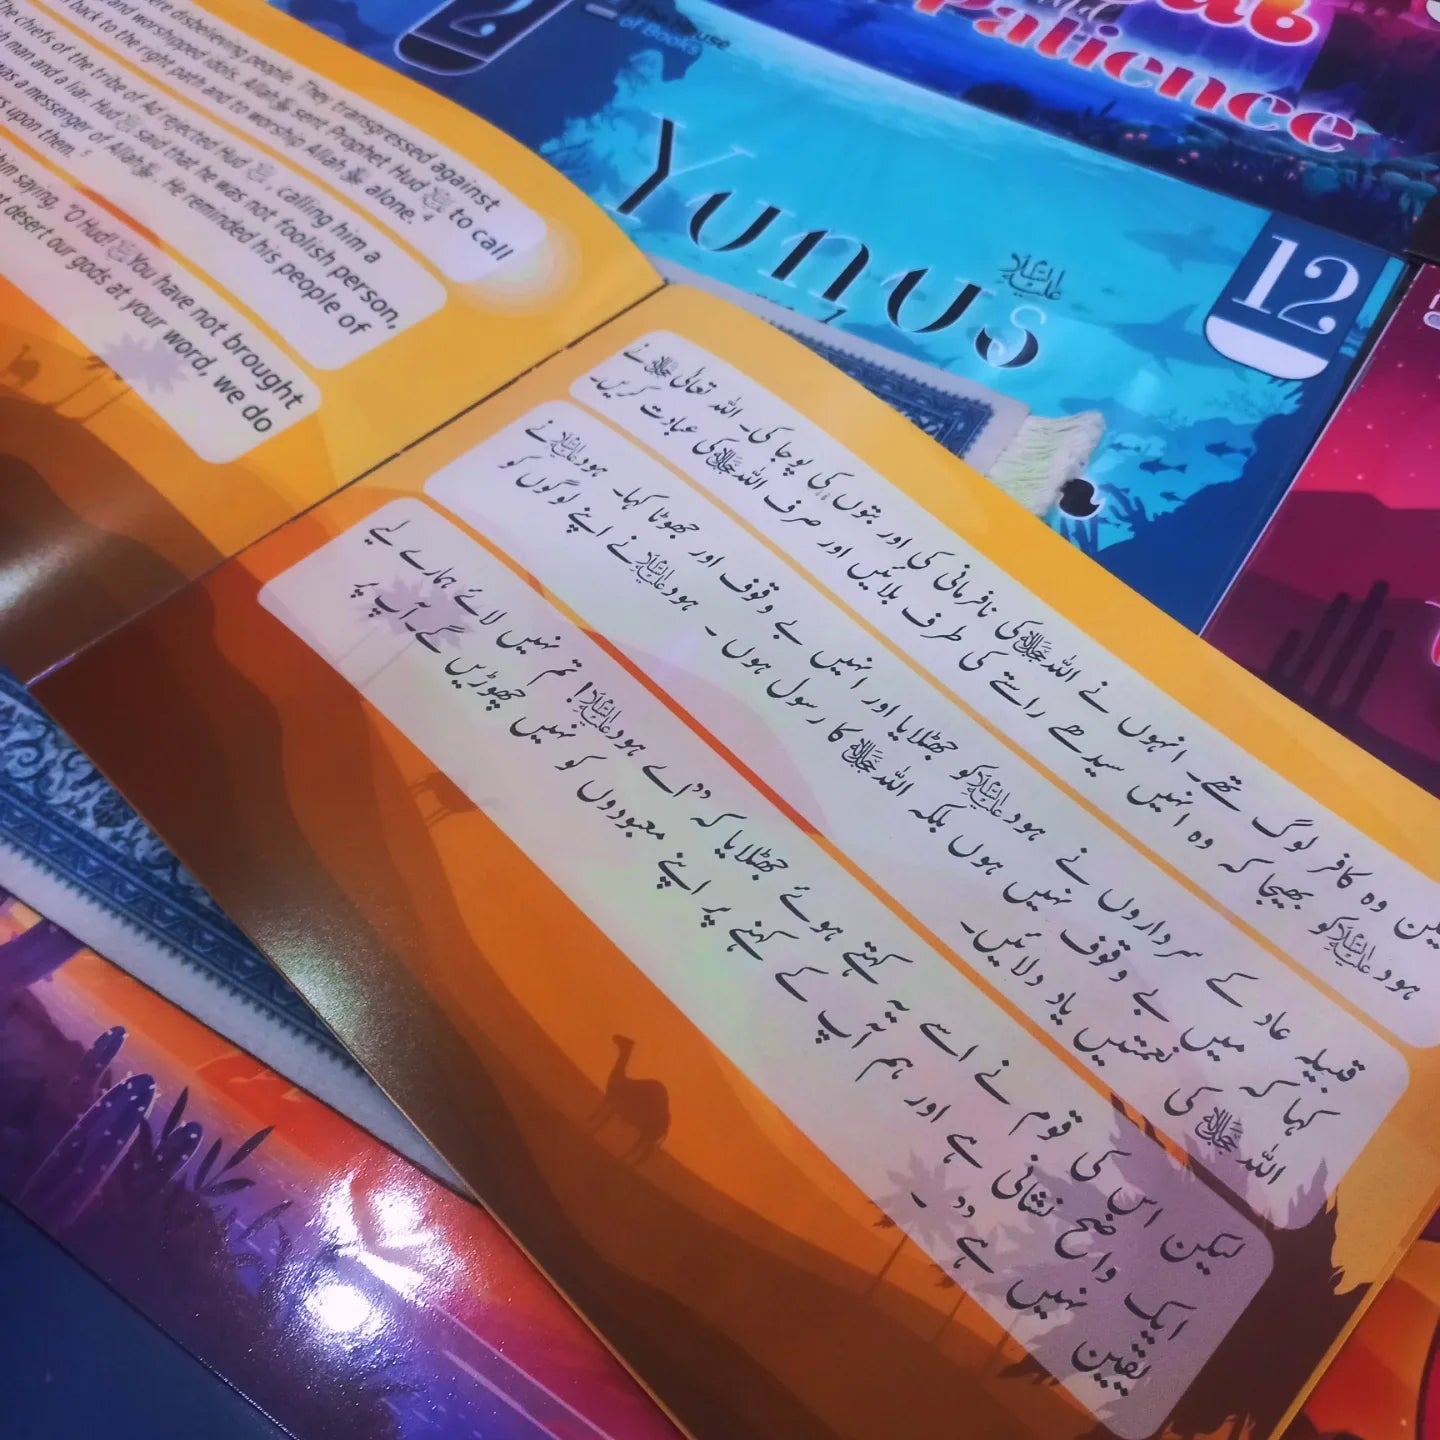 were disbelieving people. They transgressed against
and worshipped idols. Allah ﷻ sent Prophet Hud عليه السلام to call
back to the right path and to worship Allah ﷻ alone. 4
The chiefs of the tribe of Ad rejected Hud عليه السلام, calling him a
man and a liar. Hud عليه السلام said that he was not foolish person,
was a messenger of Allah ﷻ. He reminded his people of
upon them. 5
him saying, "O Hud! عليه السلام You have not brought
desert our gods at your word, we do
وہ کافر لوگ تھے۔ انہوں نے اللہ ﷻ کی نافرمانی کی اور بتوں کی پوجا کی۔ اللہ تعالیٰ ﷻ نے
ہود علیہ السلام کو بھیجا کہ وہ انہیں سیدھے راستے کی طرف بلائیں اور صرف اللہ ﷻ کی عبادت کریں۔
قبیلہ عاد کے سرداروں نے ہود علیہ السلام کو جھٹلایا اور انہیں بے وقوف اور جھوٹا کہا۔ ہود علیہ السلام نے
کہا کہ میں بے وقوف نہیں ہوں بلکہ اللہ ﷻ کا رسول ہوں۔ ہود علیہ السلام نے اپنے لوگوں کو
اللہ ﷻ کی نعمتیں یاد دلائیں۔
لیکن اس کی قوم نے اسے یہ کہتے ہوئے جھٹلایا کہ "اے ہود علیہ السلام! تم نہیں لائے ہمارے لیے
ایک واضح نشانی ہے اور ہم آپ کے کہنے پر اپنے معبودوں کو نہیں چھوڑیں گے۔ آپ پر
یقین نہیں ہے"۔
of Books
Patience
Yunus عليه السلام
12